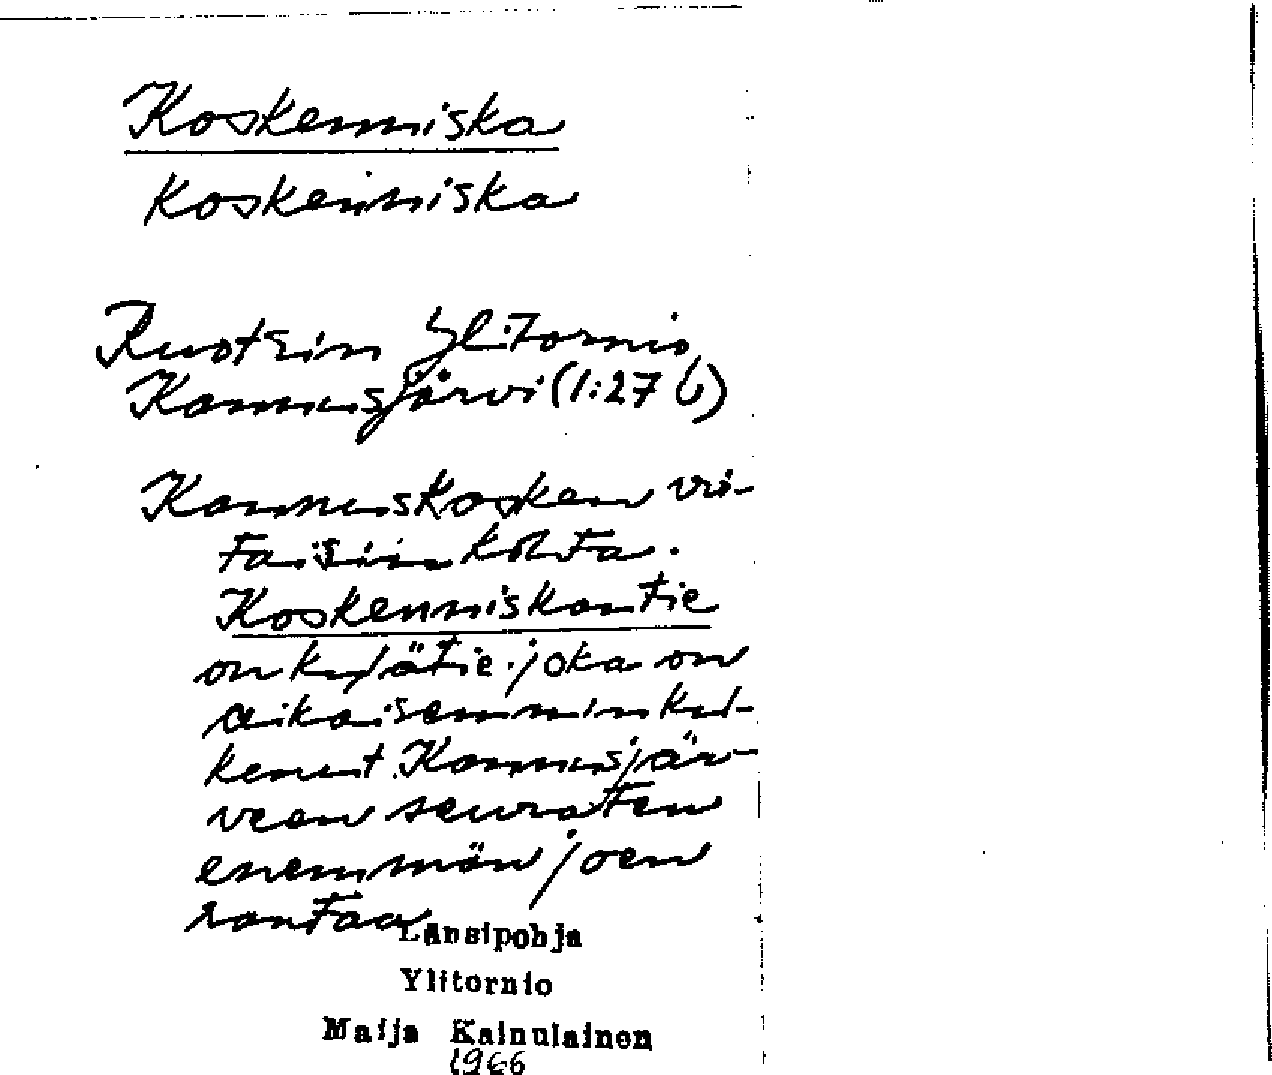 Koskenniska
Koskenniska
Ruotsin Ylitornio
Kannusjärvi (1:27 b)
Kannuskosken vir-
taisin kohta.
Koskenniskantie
on kylätie, joka on
aikaisemmin kul-
kenut Kannusjär-
veen seuraten
enemmän joen
rantaa
Länsipohja
Ylitornio
Maija Kainulainen
1966